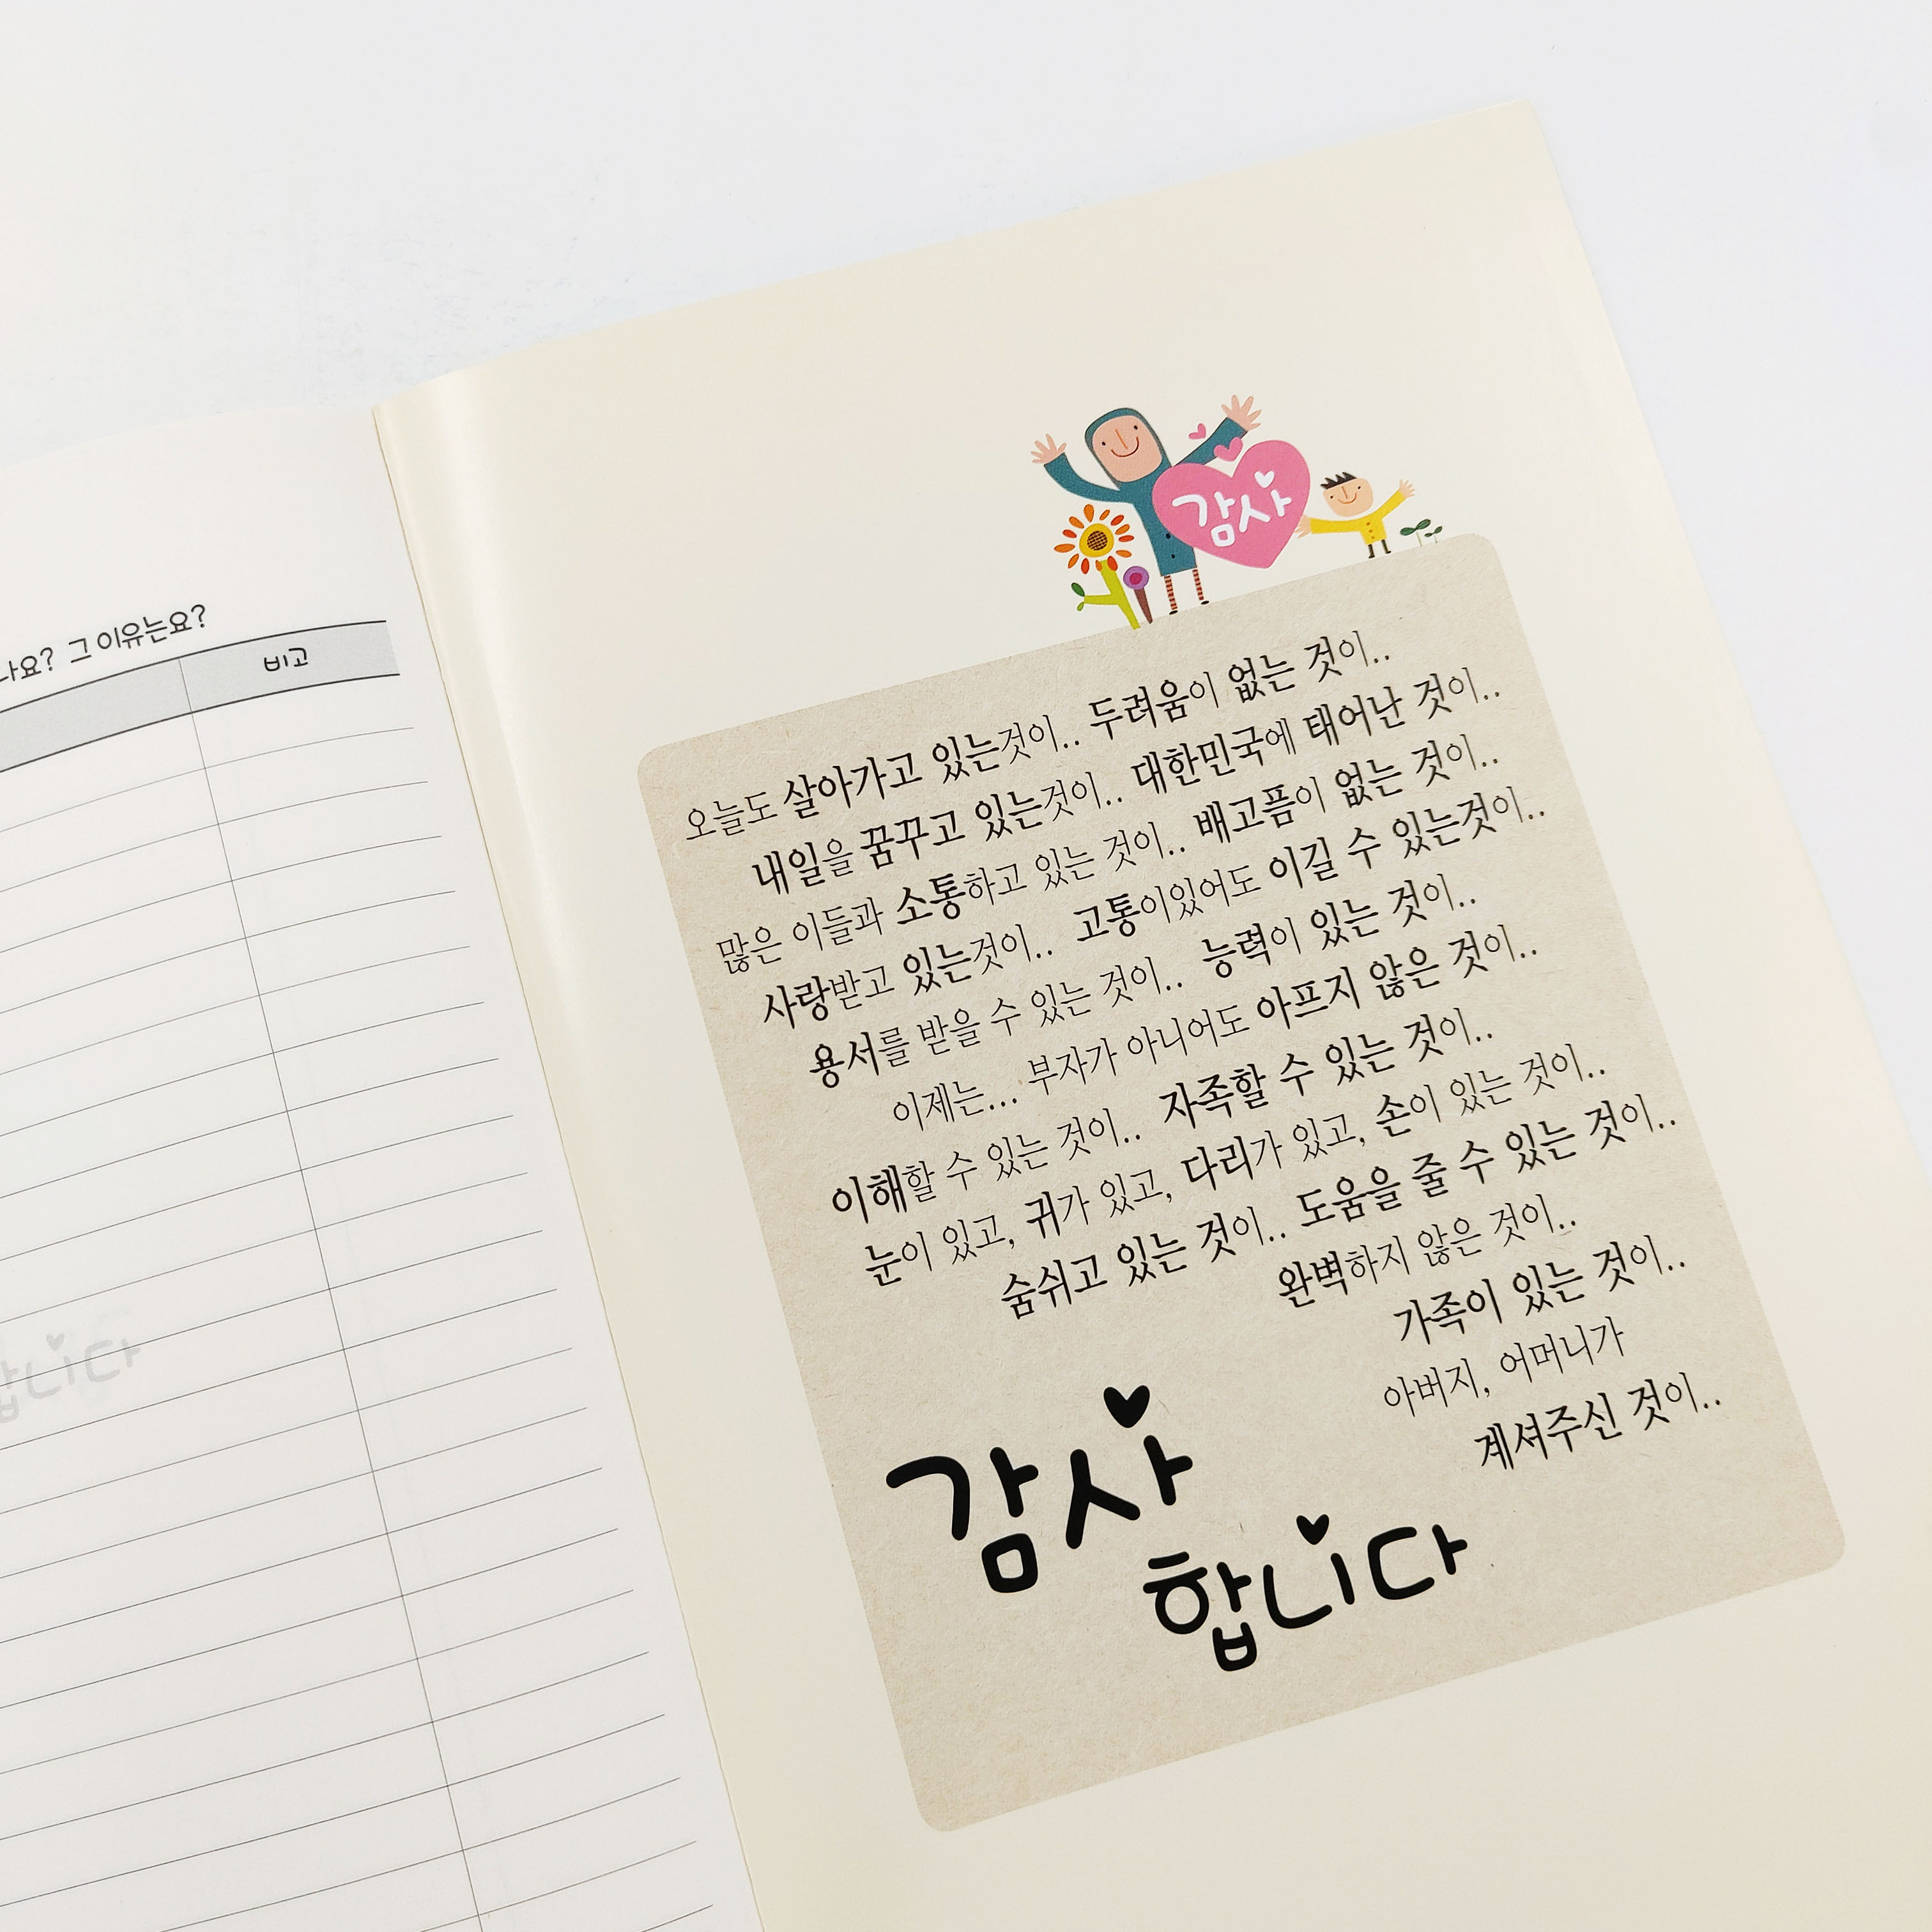 그 이유는요?
비고
합니다
감사
오늘도 살아가고 있는것이.. 두려움이 없는 것이..
내일을 꿈꾸고 있는것이.. 대한민국에 태어난 것이..
많은 이들과 소통하고 있는 것이.. 배고픔이 없는 것이..
사랑받고 있는것이.. 고통이있어도 이길 수 있는것이..
용서를 받을 수 있는 것이.. 능력이 있는 것이..
이제는... 부자가 아니어도 아프지 않은 것이..
이해할 수 있는 것이.. 자족할 수 있는 것이..
눈이 있고, 귀가 있고, 다리가 있고, 손이 있는 것이..
숨쉬고 있는 것이.. 도움을 줄 수 있는 것이..
완벽하지 않은 것이..
가족이 있는 것이..
아버지, 어머니가
계셔주신 것이..
감사
합니다